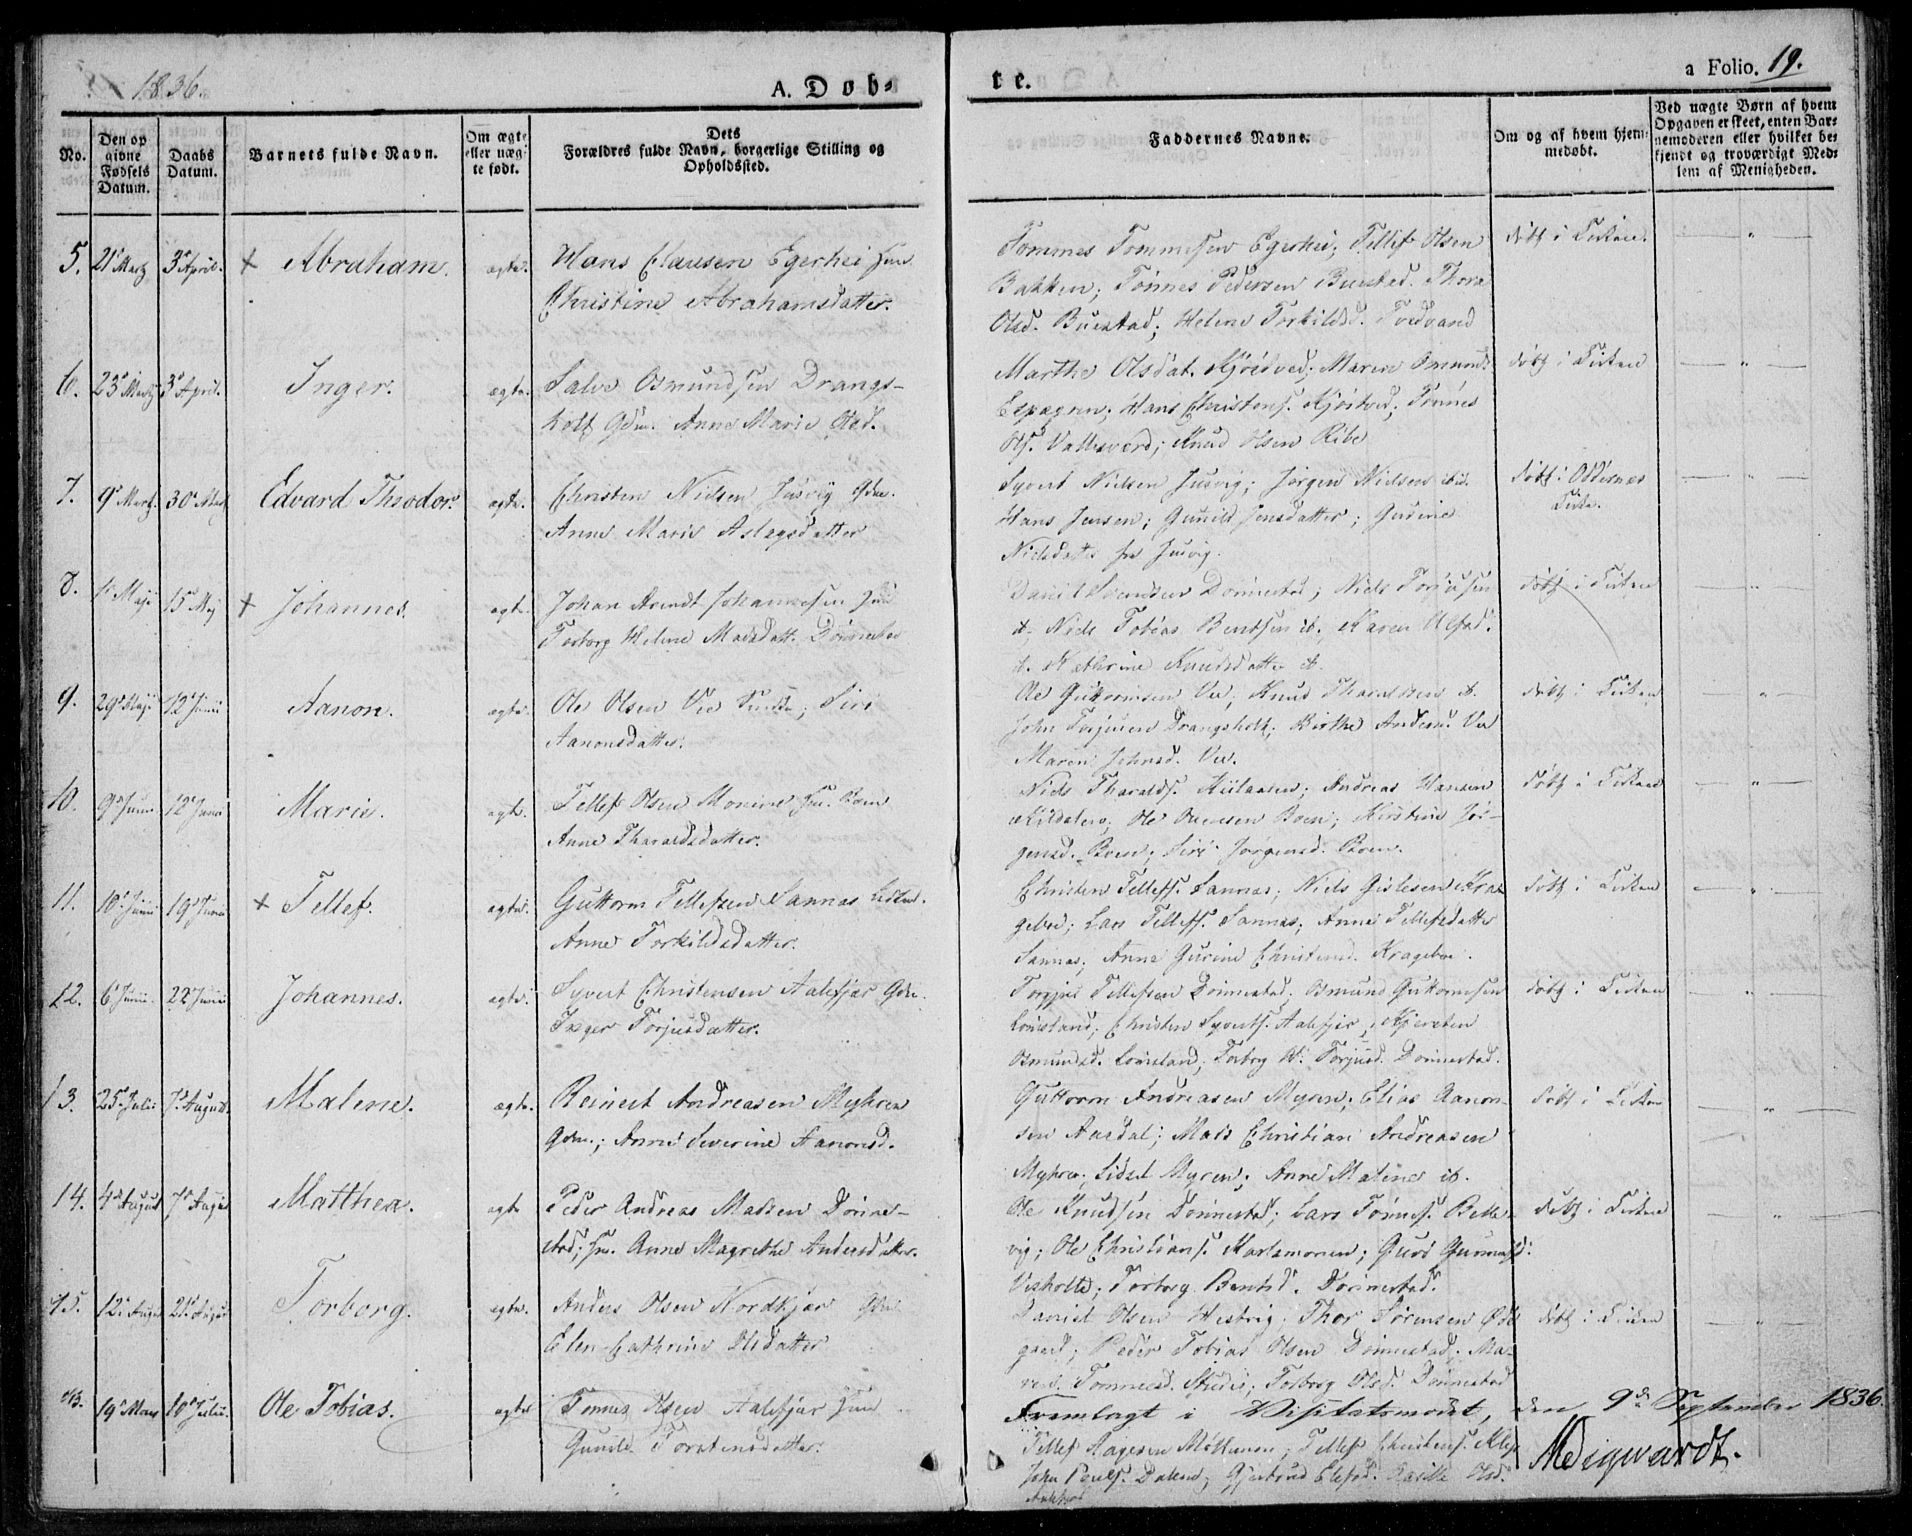 1836.
A. Døb-
te.
a Folio. 19.
No.
Den opgivne Fødsels Datum.
Daabs Datum.
Barnets fulde Navn.
Om ægte eller uægte født.
Dets Forældres fulde Navn, borgerlige Stilling og Opholdssted.
Faddernes Navne.
Om og af hvem hjemmedøbt.
Ved uægte Børn af hvem Opgaven er skeet, enten Barnemoderen eller hvilket bekjendt og troværdigt Medlem af Menigheden.
5. 21 Martz 3 April. + Abraham. ægte. Hans Clausen Egerhei
Christine Abrahamsdatter.
Tommes Tommesen Egerhei; Tellef Olsen
Bakken; Tønnes Pedersen Buestad. Thore
Olsd. Buestad; Helene Torkildsd. Tvedvand
døbt i Kirken.
6. 23 Martz 3 April. Inger. ægte. Salve Osmundsen Drangs-
holt Gdm. Anne Marie Olsd.
Marthe Olsdat. Kjostved; Maren Osmunds
Espagren; Hans Christens. Kjostved; Tønnes
Ols. Vallesverd; Knud Olsen Ribe
døbt i Kirken
7. 9 Martz. 30 Martz Edvard Theodor. ægte. Christen Nielsen Jusvig Gdm.
Anne Marie Aslagsdatter
Syvert Nielsen Jusvig; Jørgen Nielsen ib.
Hans Jensen; Gunild Jensdatter; Gurine
Nielsdatter fra Jusvig.
døbt i Oddernes
Kirke.
8. 1 Maji 15 Maj + Johannes. ægte. Johan Arendt Johannesen
Torborg Helene Madsdatt. Dønnestad
Daniel Svendsen Dønnestad; Niels Torjusen
ib. Niels Tobias Bentsen ib. Karen Olsd.
ib. Kathrine Knudsdatter ib.
døbt i Kirken
9. 29 Maji 12 Junii Aanon. ægte. Ole Olsen Vee; Siri
Aanonsdatter.
Ole Guttormsen Vee; Knud Tharaldsen ib.
John Torjusen Drangsholt; Birthe Anders. Vee
Maren Johnsd. Vee.
døbt i Kirken
10. 9 Junii 12 Junii Marie. ægte. Tellef Olsen Monene Boen
Anne Tharaldsdatter.
Niels Tharalds. Kiilaasen; Andreas Hansen
Kildalen; Ole Boen; Kirstine Jør-
gensd. Boen; Siri Jørgensd. Boen.
døbt i Kirken
11. 10 Junii 19 Junii + Tellef. ægte. Guttorm Tellefsen Sannæs
Anne Torkildsdatter.
Christen Tellefs. Sannæs; Niels Gislesen Kra-
geboe; Lars Tellefs. Sannæs; Anne Tellefsdatter
Sannæs; Anne Gurine Christensd. Krageboe.
døbt i Kirken
12. 6 Junii. 22 Junii Johannes. ægte. Syvert Christensen Aalefjær Gdm.
Inger Torjusdatter.
Torjus Tellefsen Dønnestad; Osmund Guttormsen
Loveland; Christen Syverts. Aalefjær; Kjersten
Osmundsd. Loveland; Torborg Torjusd. Dønnestad.
døbt i Kirken
13. 25 Julii 7 August. Malene. ægte. Reinert Andreasen Myhren
Gdm.; Anne Severine Aanonsd.
Guttorm Andreasen Myren; Elias Aanon-
sen Aasdal; Mads Christian Andreasen
Myhren; Sidsel Myren; Anne Malene ib.
døbt i Kirken
14. 4 August 7 August Matthea. ægte Peder Andreas Madsen Dønne-
stad; Anne Magrethe Andersdatter.
Ole Knudsen Dønnestad; Lars Tønnes. Belle-
vig; Ole Christians. Karlsmonen; Guri Gunnufsd.
Vesholte; Torborg Bentsd. Dønnestad.
døbt i Kirken
15. 12 August 21 August Torborg. ægte. Anders Olsen Nordkjær Gdm.
Elen Cathrine Olsdatter
Daniel Olsen Hestvig; Thor Sørensen Øde-
gaard; Peder Tobias Olsen Dønnestad. Ma-
ren Tommesd. Stuene; Torborg Olsd. Dønnestad
døbt i Kirken
19 10 Julii. Ole Tobias. ægte Tønnes Olsen Aalefjær
Gunild Torstensdatter.
Fremlagt i Visitatsmødet, den 9de September 1836.
Tellef Aagesen; Tellef Christens.
John Dalene; Gjertrud
Aalefjær